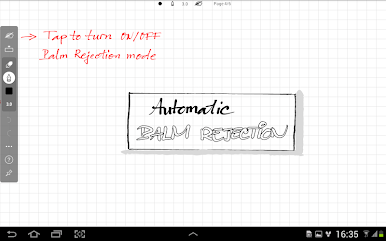 3.0 Page 6/6
→ Tap to turn ON/OFF
Palm Rejection mode
3.0
Automatic
PALM REJECTION
16:35